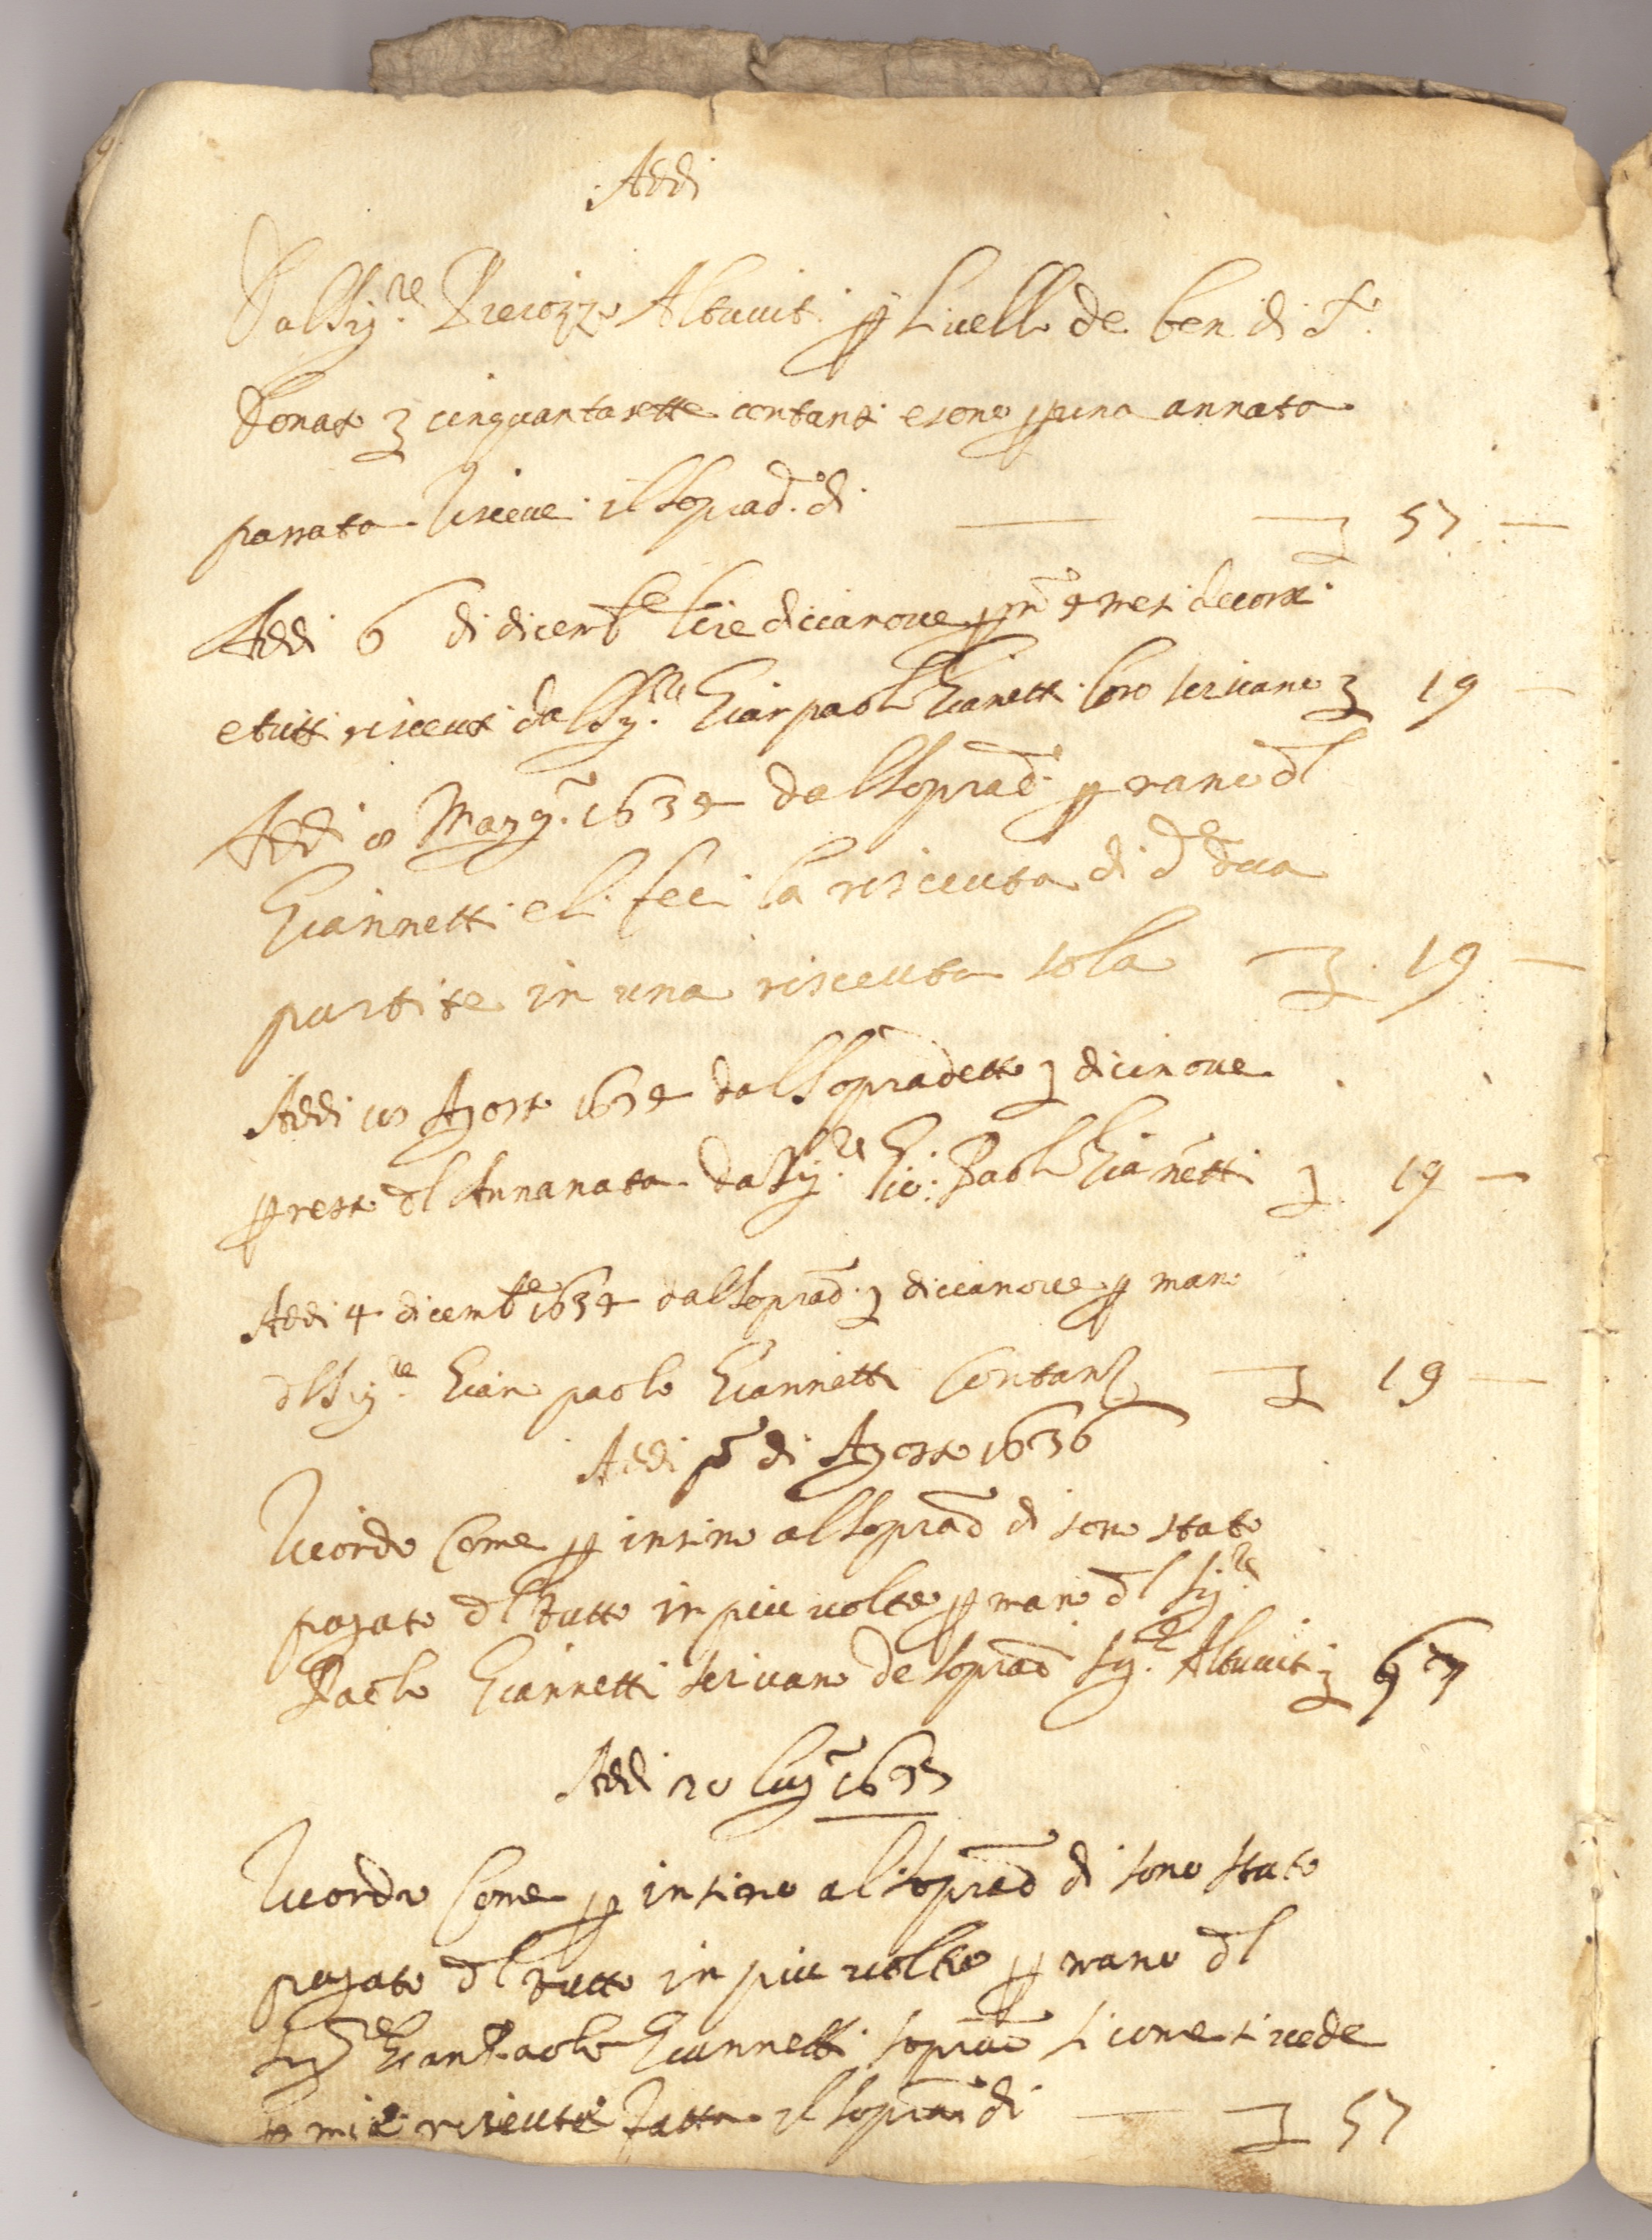 Addi
Dal Sig.re Altoviti p Livello de beni di S.
Donato ʒ cinquantasette contanti e sono p una annata
passata riscevei il soprad.o di — ʒ 57 —
Addi 6 di dicembe lire diccianove p 4 mesi decorsi
e tutti risceuti dal Sig.re Gian paolo Gianetti loro scrivano ʒ 19 —
Addi 8 Magg.o 1634 dal soprad.o p mano dl
Giannetti e li feci la risceuta di d.e dua
partite in una risceuta sola ʒ 19 —
Addi 10 Agosto 1634 dal sopradetto ʒ dicinove
p resto dl Annanata da Sig.re Gio: Paolo Gianetti ʒ 19 —
Addi 4 dicembe 1634 dal soprad.o ʒ diccianove p mano
dl Sig.re Gian paolo Giannetti Contanti ʒ 19 —
Addi po di Agosto 1636
Ricordo Come p insino al soprad.o di sono stato
pagato dl tutto in piu volte p mano dl Sig.re
Paolo Giannetti scrivano de soprad.o Sig.re Altoviti ʒ 57
Addi 20 lug.o 1635
Ricordo Come p insino al soprad.o di sono stato
pagato dl tutto in piu volte p mano dl
Sig.re Gian Paolo Giannetti soprad.o si come si vede
p mie risceute fatta il soprad.o di — ʒ 57